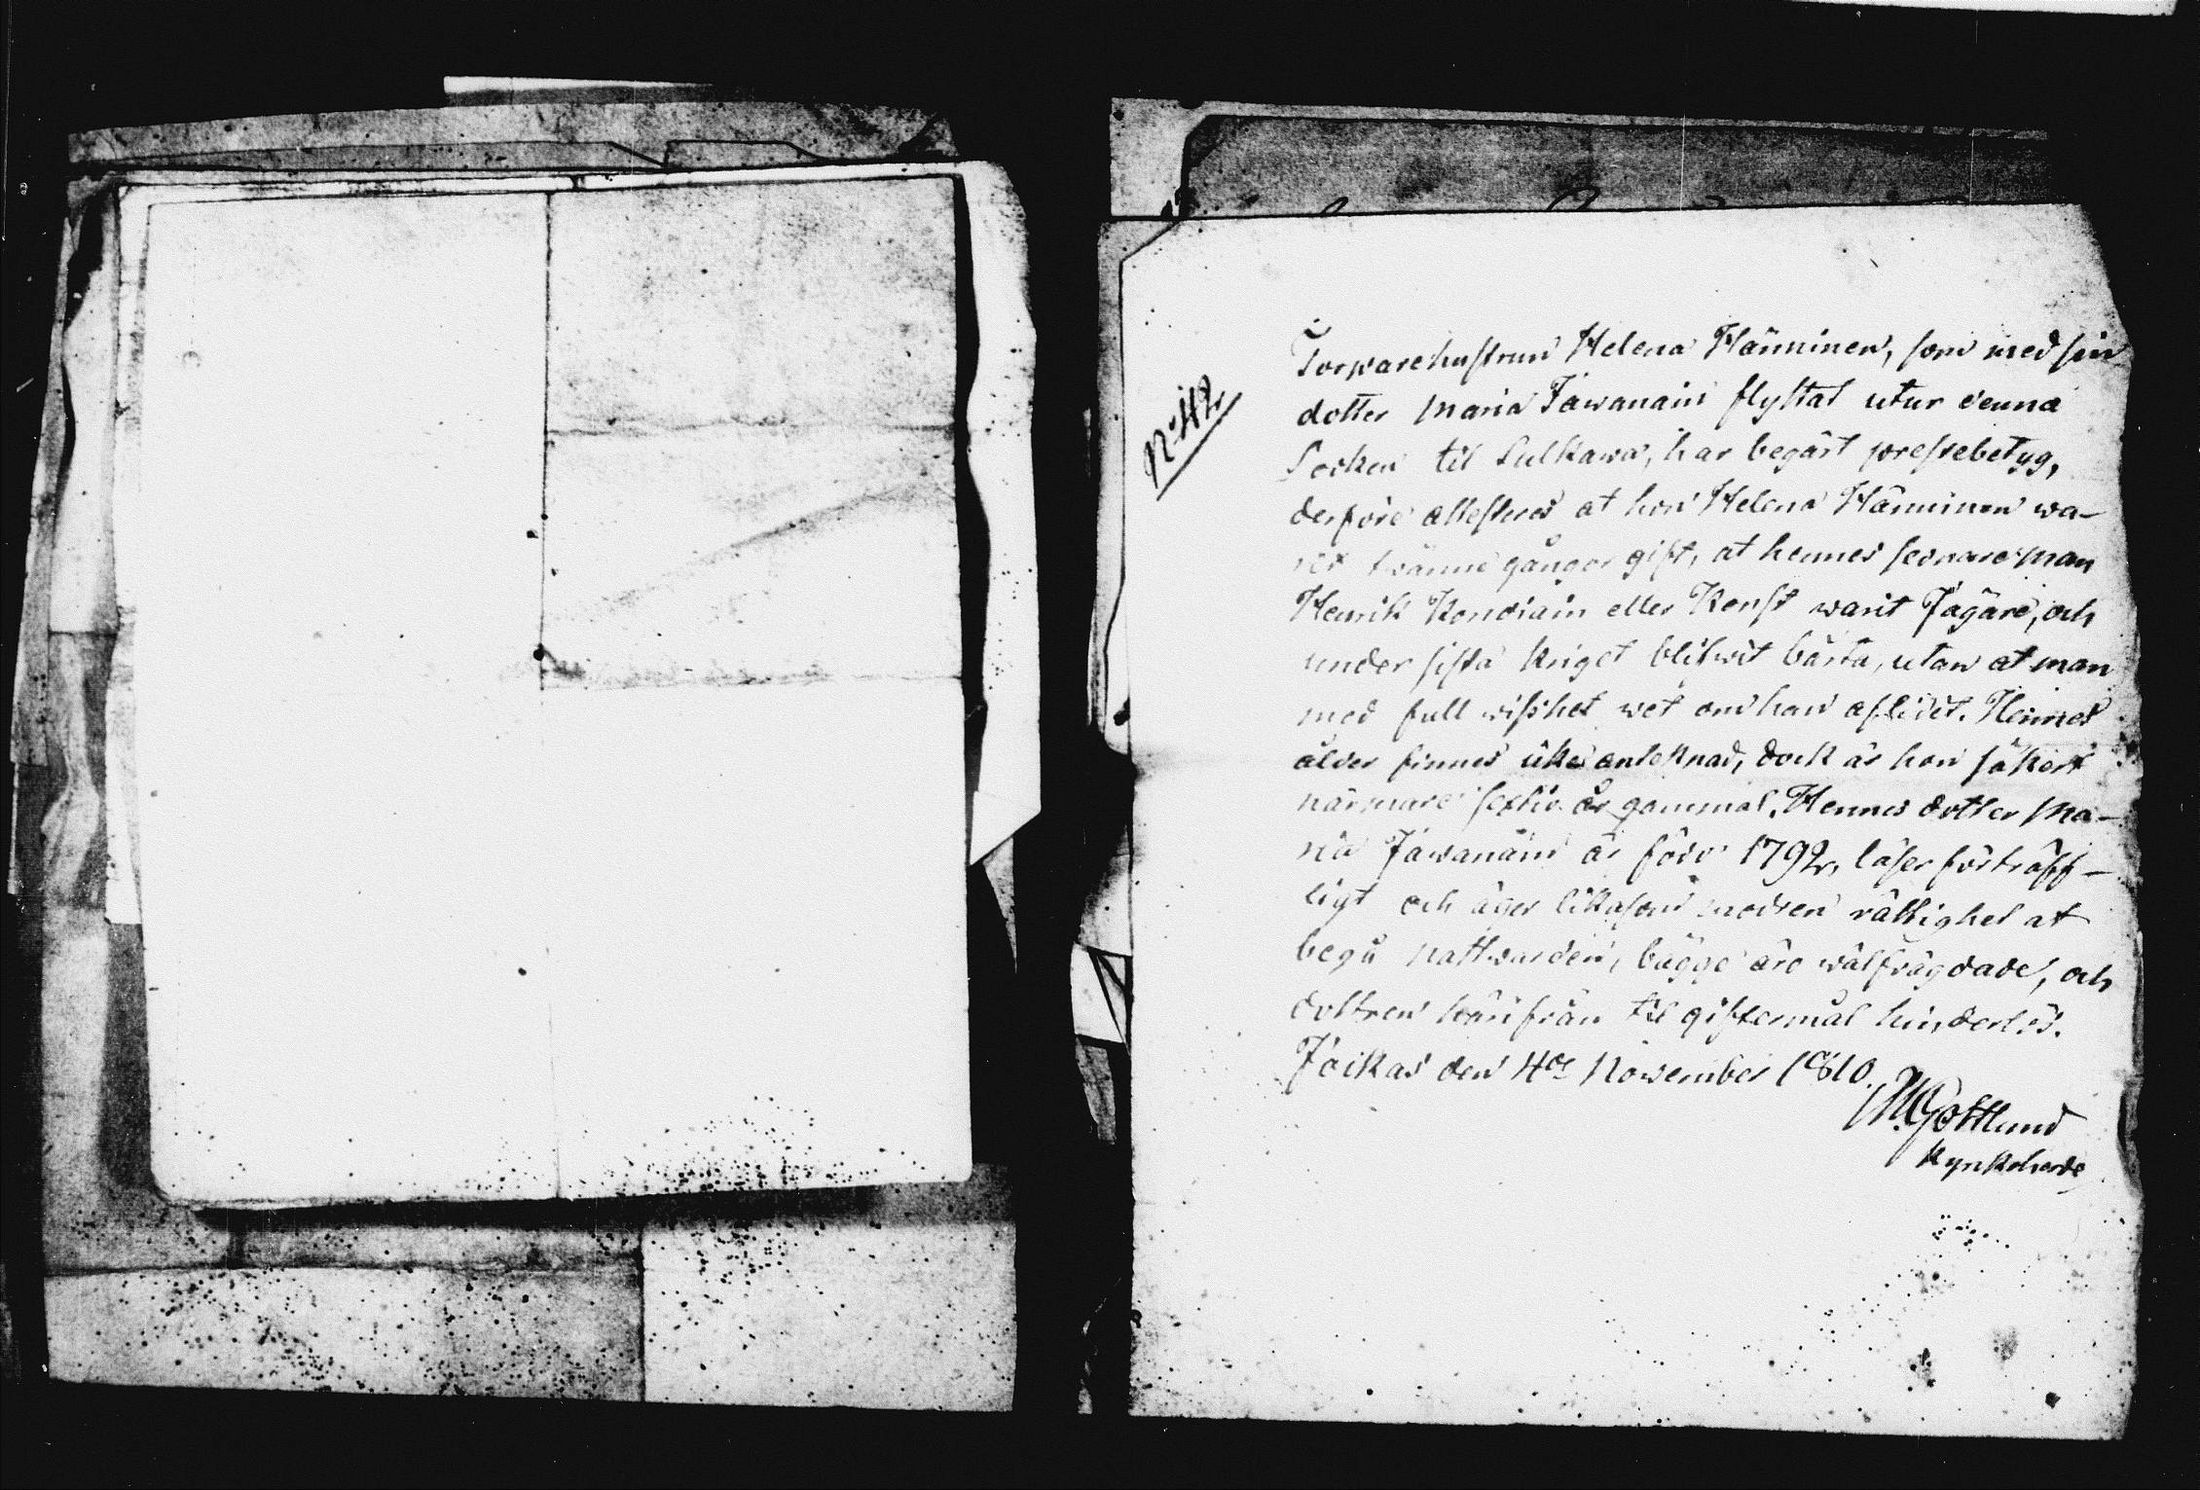 No 42
Torparehustrun Helena Hänninen, som med sin
dotter Maria Jäwanäin flyttat utur denna
Socken til Sulkawa, har begärt prestebetyg,
derföre attesteres at hon Helena Hänninen wa-
rit twänne gångor gift, at hennes sednare man
Henrik Kondiain eller Konst warit Jägare, och
under sista kriget blifwit bårta, utan at man
med full wisshet wet om han aflidit. Hennes
ålder finnes icke anteknad, dock är hon säkert
närmare sextio år gammal. Hennes dotter Ma-
ria Jäwanäin är född 1792, läser förträff-
ligt och äger likasom modren rättighet at
begå nattwarden, bägge äro wälfrägdade, och
dottren härifrån til giftermål hinderlös.
Jockas den 4de November 1810.
M. Gottlund
Kyrkoherde